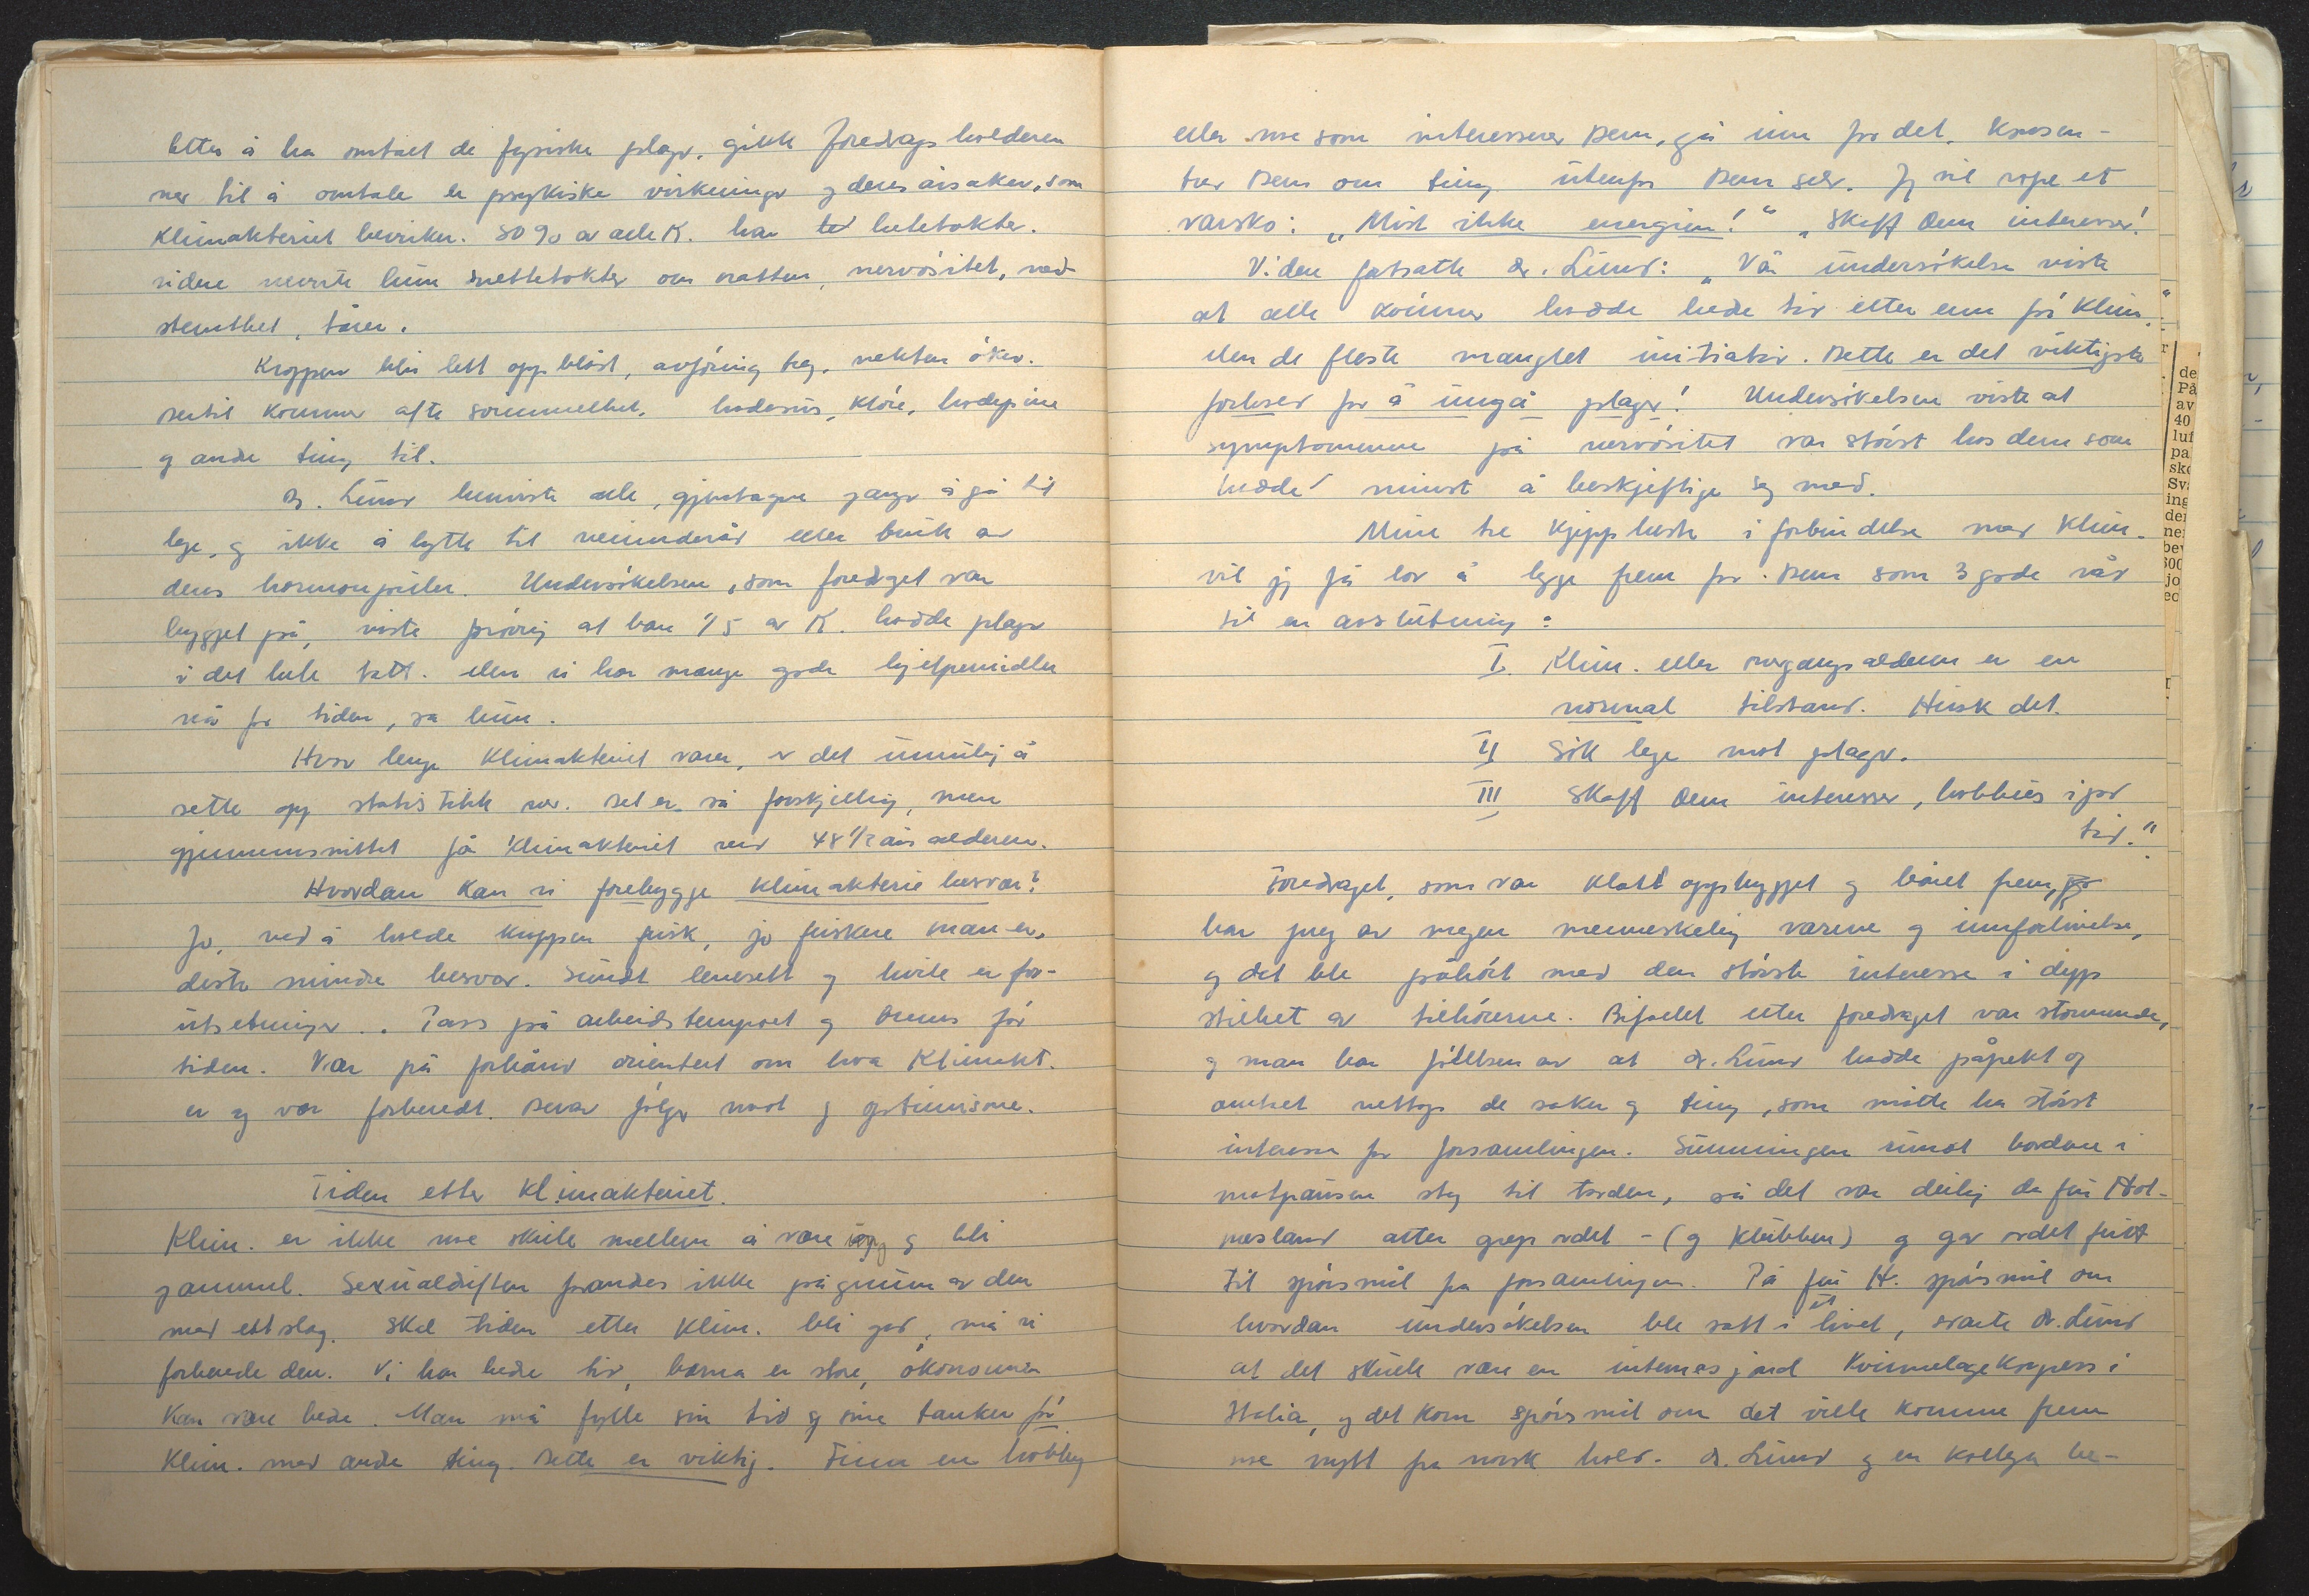 Etter å ha omtalt de fysiske plager, gikk foredragsholderen
over til å omtale de psykiske virkninger og deres årsaker, som
Klimakteriet bevirker. 80 % av alle K. har hetetokter.
videre nevnte hun svettetokter om natten, nervøsitet, ned-
stemthet, tårer.
Kroppen blir lett oppblåst, avføring treg, vekten øker.
dertil kommer ofte svimmelhet, hodesus, kløe, hodepine
og andre ting til.
Dr. Lund henviste alle, gjentagne ganger å gå til
lege, og ikke å lytte til veninderåd eller bruk av
deres hormonpiller. Undersøkelsen, som foredraget var
bygget på, viste at bare 1/5 av K. hadde plager
i det hele tatt. Men vi har mange gode hjelpemidler
nå for tiden, sa hun.
Hvor lenge Klimakteriet varer, er det umulig å
sette opp statistikk over. Det er så forskjellig, men
gjennemsnittet får Klimakteriet ved 48 1/2 års alderen.
Hvordan kan vi forebygge klimakterie besvær?
Jo, ved å holde kroppen frisk, jo friskere man er,
desto mindre besvær. Sundt levesett og hvile er for-
utsetninger. Pass på arbeidstempoet og Deres før
tiden. Vær på forhånd orientert om hva Klimakt.
er og vær forberedt. Derav følger mot og optimisme.
Tiden etter Klimakteriet.
Klim. er ikke noe skille mellem å være ung og bli
gammel. Sexualdriften forandres ikke på grunn av den
med ett slag. Skal tiden etter Klim. bli god, må vi
forberede den. Vi har bedre tid, barna er store, økonomien
Kan være bedre. Man må fylle sin tid og sine tanker før
Klim. med andre ting. Dette er viktig. Finn en hobby
eller noe som interesserer Dem, gå inn for det. Konsen-
trer Dem om ting utenfor Dem selv. Jeg vil rope et
varsko: „Mist ikke energien!" „Skaff Dem interesser!
Viden fortsatte dr. Lund: „Vår undersøkelse viste
at alle kvinner hadde bedre tid etter enn før Klim.
Men de fleste manglet initiativ. Dette er det viktigste
for å ungå plager! Undersøkelsen viste at
symptomene på nervøsitet var størst hos dem som
hadde minst å beskjeftige seg med.
Mine tre kjepphester i forbindelse med Klim.
vil jeg få lov å legge frem for Dem som 3 gode råd
til en avslutning:
I. Klim. eller overgangsalderen er en
normal tilstand. Husk det.
II Søk lege mot plager.
III Skaff Dem interesser, hobbies i god
tid."
Foredraget, som var klart oppbygget og båret frem,
bar preg av megen menneskelig varme og innforlivelse,
og det ble påhørt med den største interesse i dyp
stillhet av tilhørerne. Bifallet etter foredraget var stormende,
og man har følelsen av at dr. Lund hadde påpekt og
omtalt nettop de saker og ting, som måtte ha størst
interesse for forsamlingen. Summingen rundt bordene i
matpausen steg til torden, så det var deilig da fru Hol-
mesland atter grep ordet - (og Klubben) og gav ordet fritt
til spørsmål fra forsamlingen. På fru H. spørsmål om
hvordan undersøkelsen ble satt i livet, svarte dr. Lund
at det skulle være en internasjonal Kvinnelegekongress i
Italia, og det kom spørsmål om det ville komme frem
noe nytt fra norsk hold. dr. Lund og en kollega be-
de
På
av
40
luf
pa
sk
Sv
ing
de
ne
be
jo